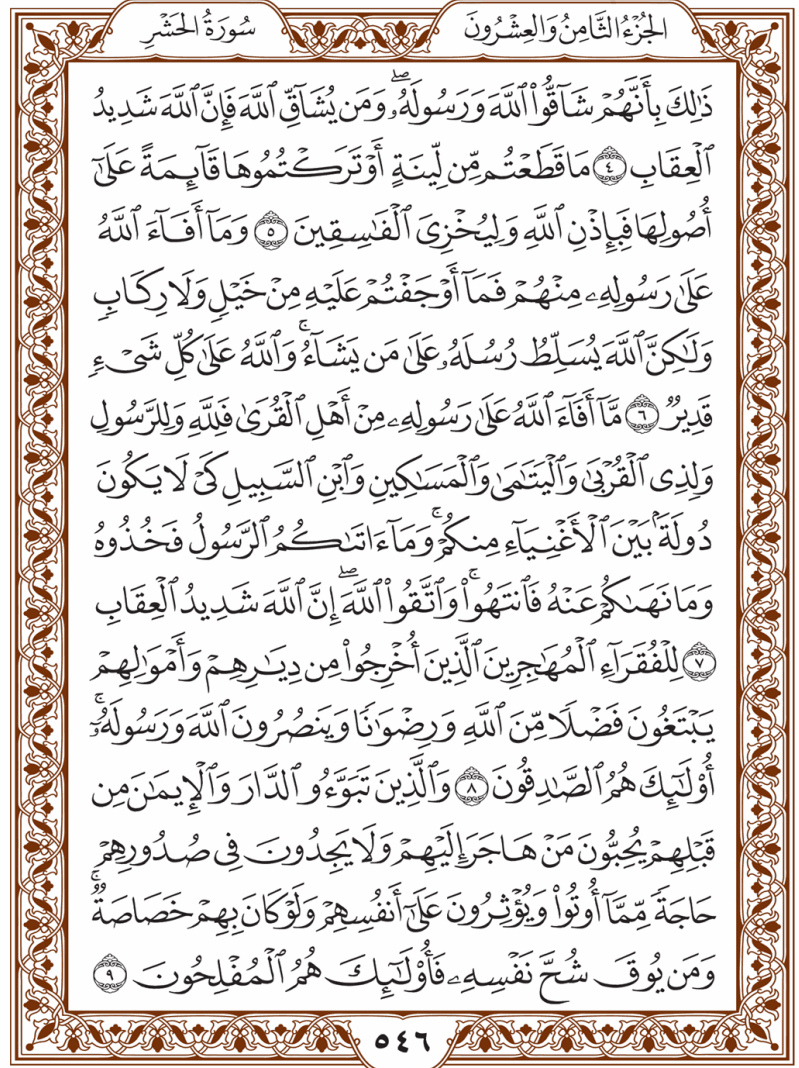 الجُزْءُ الثَّامِنُ وَالعِشْرُونَ
سُورَةُ الحَشْرِ
ذَٰلِكَ بِأَنَّهُمْ شَآقُّواْ ٱللَّهَ وَرَسُولَهُۥۖ وَمَن يُشَآقِّ ٱللَّهَ فَإِنَّ ٱللَّهَ شَدِيدُ
ٱلْعِقَابِ ٤ مَا قَطَعْتُم مِّن لِّينَةٍ أَوْ تَرَكْتُمُوهَا قَآئِمَةً عَلَىٰٓ
أُصُولِهَا فَبِإِذْنِ ٱللَّهِ وَلِيُخْزِيَ ٱلْفَٰسِقِينَ ٥ وَمَآ أَفَآءَ ٱللَّهُ
عَلَىٰ رَسُولِهِۦ مِنْهُمْ فَمَآ أَوْجَفْتُمْ عَلَيْهِ مِنْ خَيْلٍ وَلَا رِكَابٍ
وَلَٰكِنَّ ٱللَّهَ يُسَلِّطُ رُسُلَهُۥ عَلَىٰ مَن يَشَآءُۚ وَٱللَّهُ عَلَىٰ كُلِّ شَىْءٍ
قَدِيرٌ ٦ مَّآ أَفَآءَ ٱللَّهُ عَلَىٰ رَسُولِهِۦ مِنْ أَهْلِ ٱلْقُرَىٰ فَلِلَّهِ وَلِلرَّسُولِ
وَلِذِي ٱلْقُرْبَىٰ وَٱلْيَتَٰمَىٰ وَٱلْمَسَٰكِينِ وَٱبْنِ ٱلسَّبِيلِ كَىْ لَا يَكُونَ
دُولَةَۢ بَيْنَ ٱلْأَغْنِيَآءِ مِنكُمْۚ وَمَآ ءَاتَىٰكُمُ ٱلرَّسُولُ فَخُذُوهُ
وَمَا نَهَىٰكُمْ عَنْهُ فَٱنتَهُواْۚ وَٱتَّقُواْ ٱللَّهَۖ إِنَّ ٱللَّهَ شَدِيدُ ٱلْعِقَابِ
٧ لِلْفُقَرَآءِ ٱلْمُهَٰجِرِينَ ٱلَّذِينَ أُخْرِجُواْ مِن دِيَٰرِهِمْ وَأَمْوَٰلِهِمْ
يَبْتَغُونَ فَضْلًا مِّنَ ٱللَّهِ وَرِضْوَٰنًا وَيَنصُرُونَ ٱللَّهَ وَرَسُولَهُۥٓۚ
أُوْلَٰٓئِكَ هُمُ ٱلصَّٰدِقُونَ ٨ وَٱلَّذِينَ تَبَوَّءُو ٱلدَّارَ وَٱلْإِيمَٰنَ مِن
قَبْلِهِمْ يُحِبُّونَ مَنْ هَاجَرَ إِلَيْهِمْ وَلَا يَجِدُونَ فِى صُدُورِهِمْ
حَاجَةً مِّمَّآ أُوتُواْ وَيُؤْثِرُونَ عَلَىٰٓ أَنفُسِهِمْ وَلَوْ كَانَ بِهِمْ خَصَاصَةٌۚ
وَمَن يُوقَ شُحَّ نَفْسِهِۦ فَأُوْلَٰٓئِكَ هُمُ ٱلْمُفْلِحُونَ ٩
٥٤٦